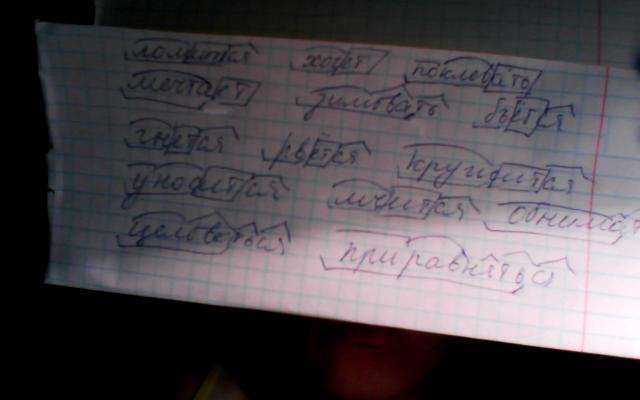 ломится хочет поклевать
мечтает зимовать бьётся
гнётся рвётся кружится
уносится мчится обнимат
целоваться приравняться